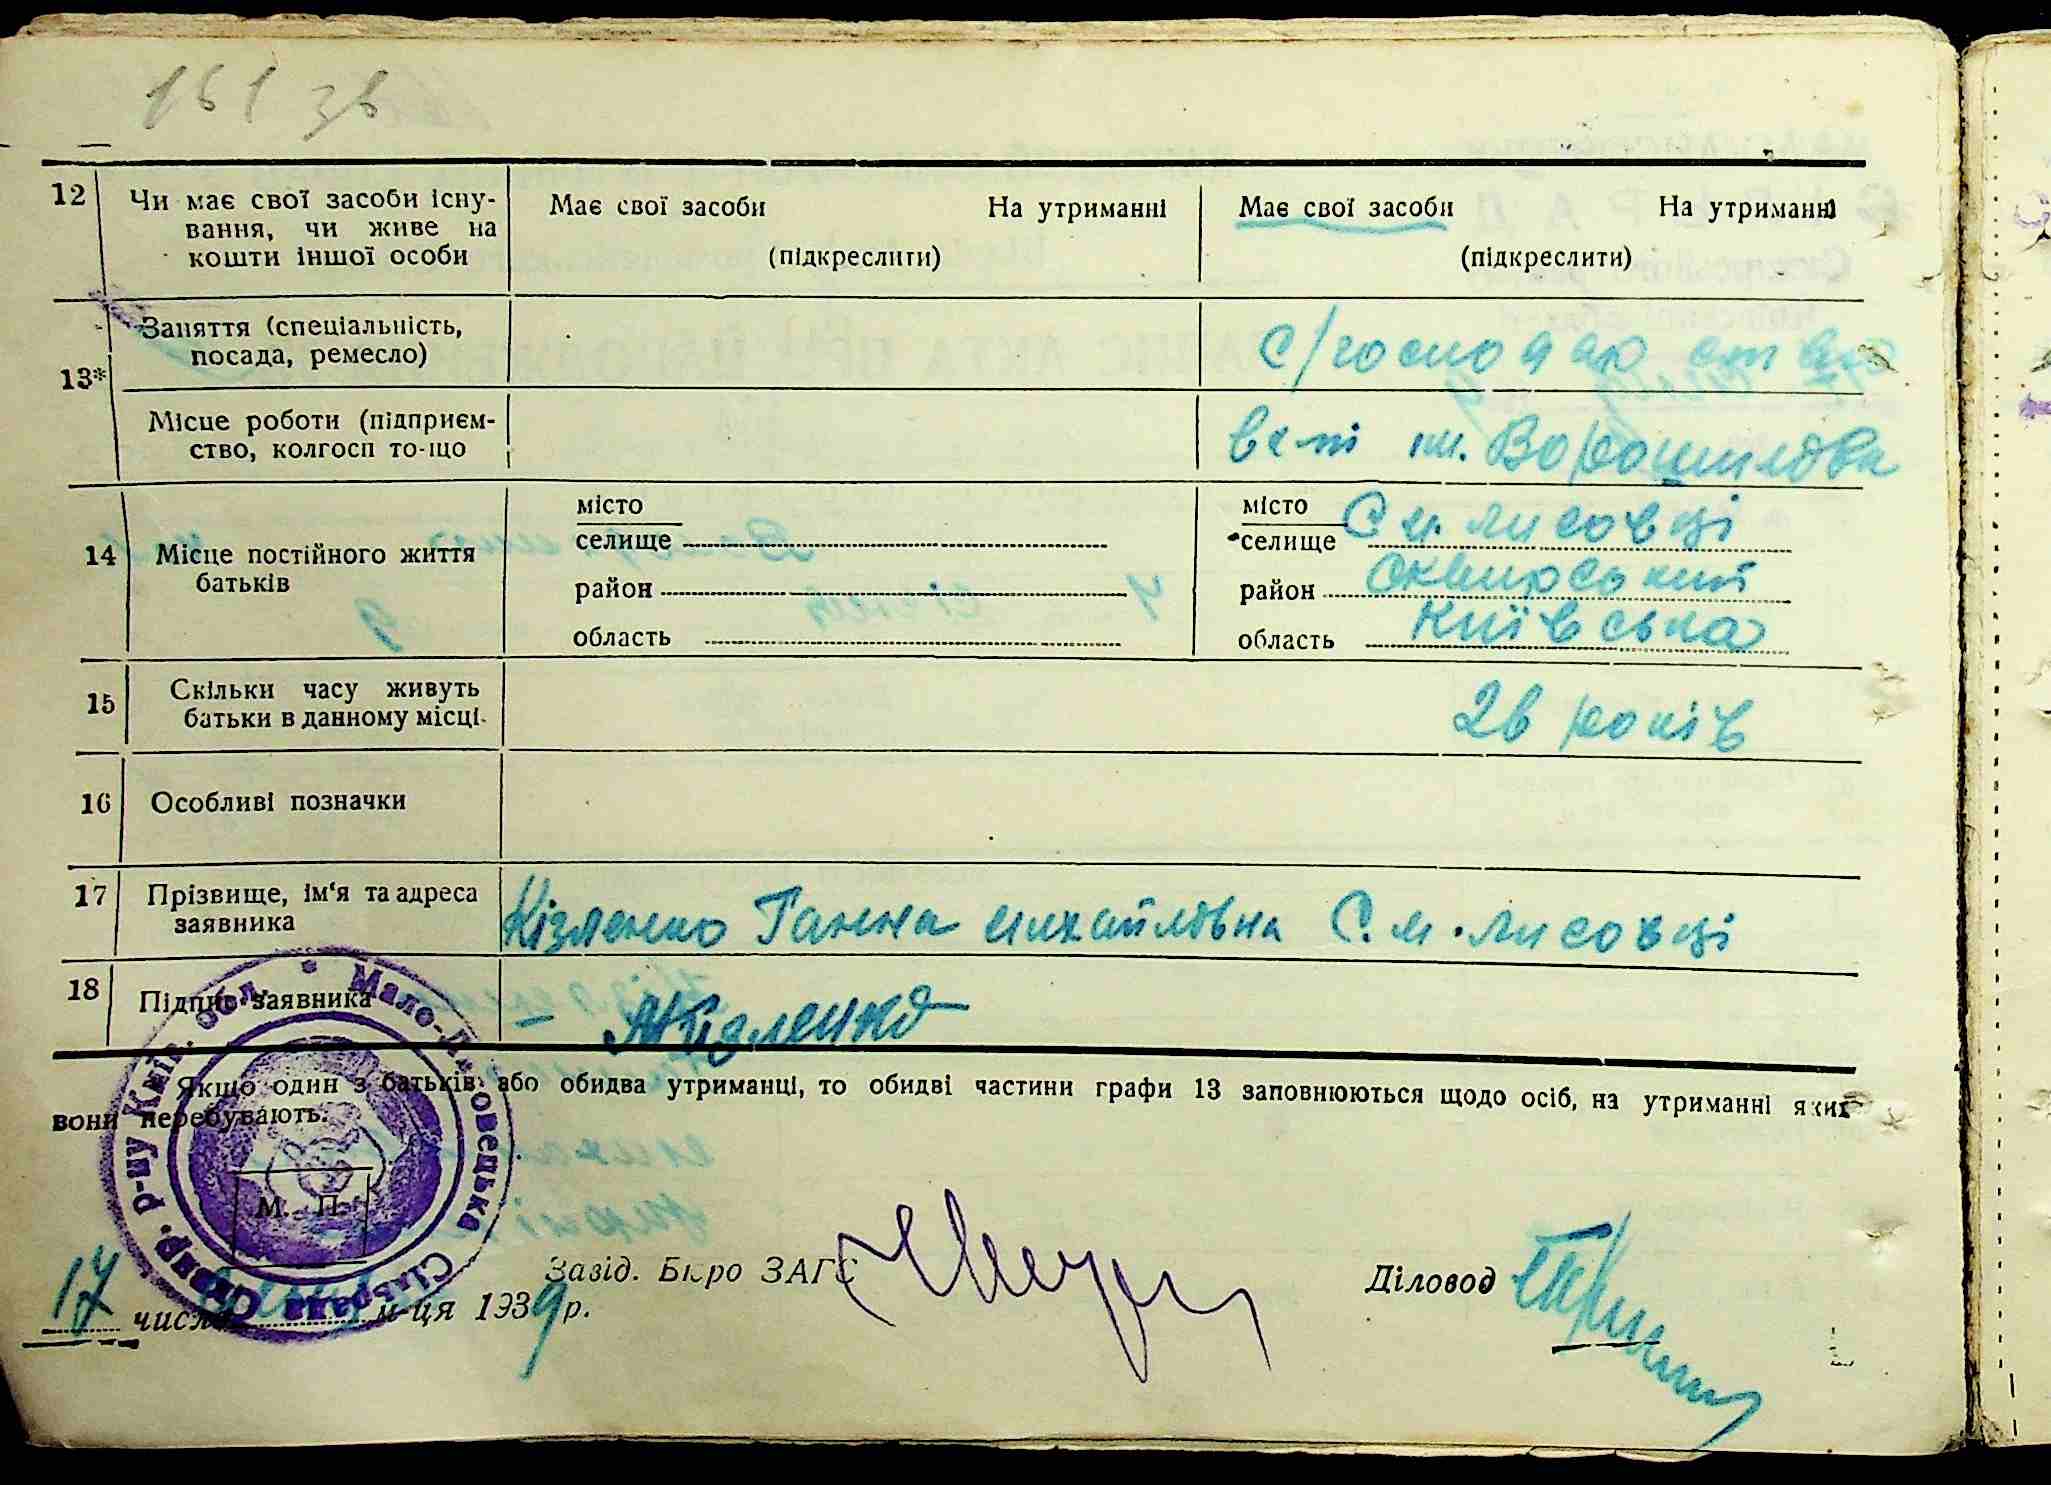 161 зв
12 Чи має свої засоби існу-
вання, чи живе на
кошти іншої особи
Має свої засоби На утриманні
(підкреслити)
Має свої засоби На утриманні
(підкреслити)
13* Заняття (спеціальність,
посада, ремесло)
с/господарство
Місце роботи (підприєм-
ство, колгосп то-що
ім. Ворошилова
14 Місце постійного життя
батьків
місто
селище
район
область
місто
селище С м. лисовці
район Сквирський
область Київська
15 Скільки часу живуть
батьки в данному місці
26 років
16 Особливі позначки
17 Прізвище, ім'я та адреса
заявника
Кізленко Ганна Михайлівна С. м. лисовці
18 Підпис заявника
Кізленко
Якщо один з батьків або обидва утриманці, то обидві частини графи 13 заповнюються щодо осіб, на утриманні яких
вони перебувають.
Мало-Лисовецька Сільрада Сквир. р-ну Київ. обл.
М. П.
Завід. Бюро ЗАГС
Діловод
17 числа м-ця 1939 р.